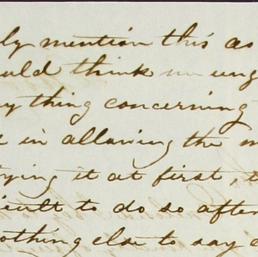 ly mention this as
ould think un
ything concerning
in allowing the m
ying it at first, t
cult to do so after
nothing else to say